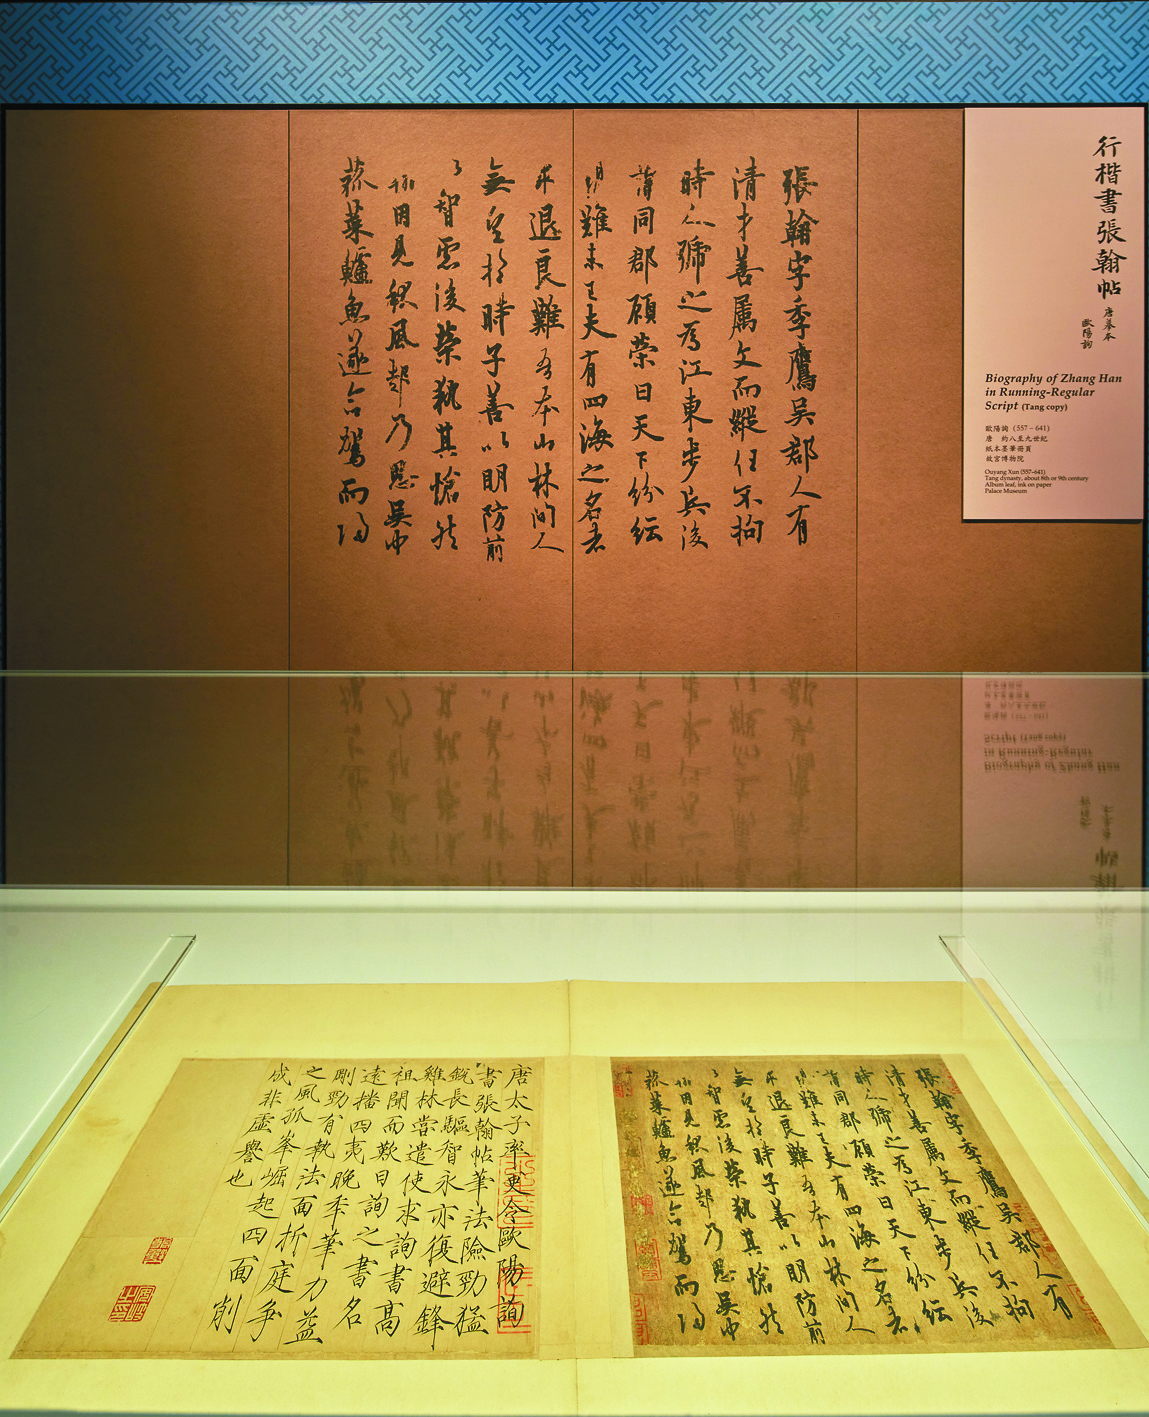 張翰字季鷹吳郡人有
清才善属文而縱任不拘
時人號之為江東步兵後
同郡顧榮曰天下紛紜
難未已夫有四海之名者
求退良難吾本山林間人
無望於時子善以明防前
智慮後榮執其愴然
翰因見秋風起乃思吳中
菰菜鱸魚遂命駕而歸
行楷書張翰帖
唐摹本
歐陽詢
Biography of Zhang Han
in Running-Regular
Script (Tang copy)
歐陽詢（557－641）
唐　約八至九世紀
紙本墨筆冊頁
故宮博物院
Ouyang Xun (557–641)
Tang dynasty, about 8th or 9th century
Album leaf, ink on paper
Palace Museum
張翰字季鷹吳郡人有
清才善属文而縱任不拘
時人號之為江東步兵後
同郡顧榮曰天下紛紜
難未已夫有四海之名者
求退良難吾本山林間人
無望於時子善以明防前
智慮後榮執其愴然
翰因見秋風起乃思吳中
菰菜鱸魚遂命駕而歸
唐太子率更令歐陽詢
書張翰帖筆法險勁猛
銳長驅智永亦復避鋒
雞林嘗遣使求詢書高
祖聞而歎曰詢之書名
遠播四夷晚年筆力益
剛勁有執法面折庭爭
之風孤峯崛起四面削
成非虛譽也